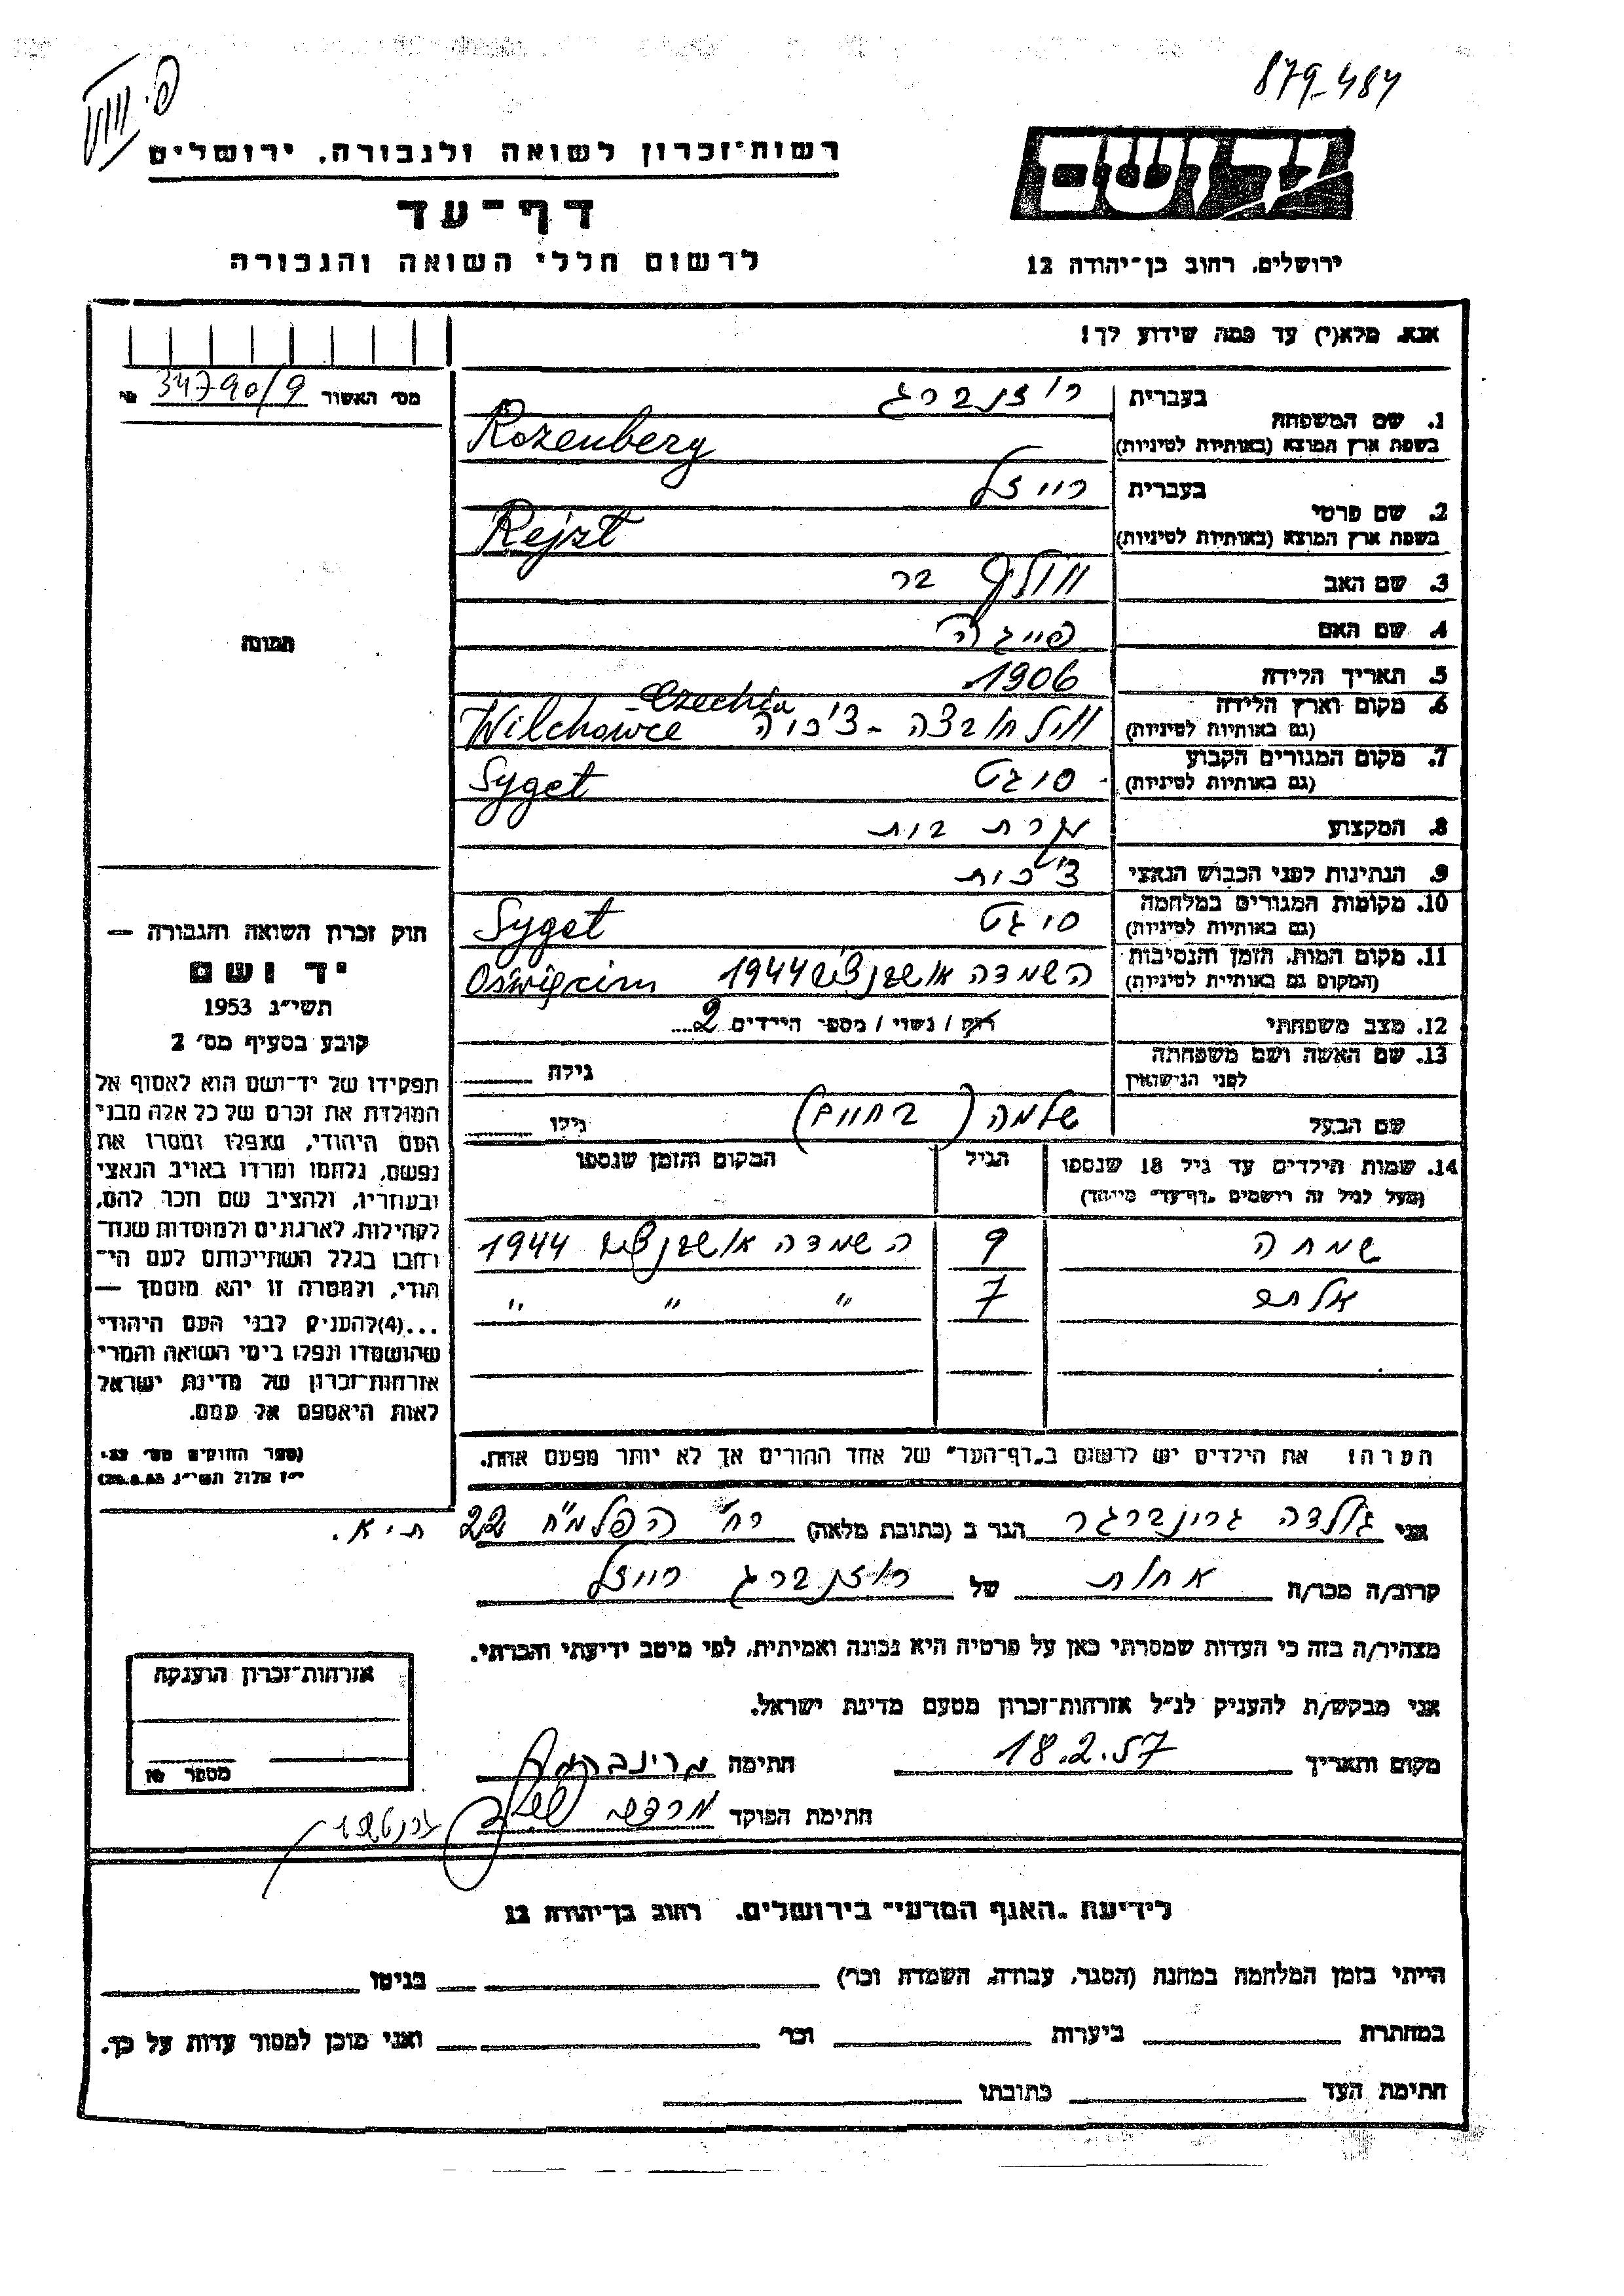 879-484
רשות־זכרון לשואה ולגבורה, ירושלים
ידושם
דף־עד
ירושלים, רחוב בן־יהודה 12
לרשום חללי השואה והגבורה
אנא, מלא(י) עד כמה שידוע לך!
מס׳ האשור 34790/9 №
תמונה
1. שם המשפחה בעברית רוזנברג
בשפת ארץ המוצא (באותיות לטיניות) Rozenberg
2. שם פרטי בעברית רייזל
בשפת ארץ המוצא (באותיות לטיניות) Rejzt
3. שם האב וולף בר
4. שם האם פייגה
5. תאריך הלידה 1906
6. מקום וארץ הלידה Czechia
(גם באותיות לטיניות) ווילחובצה - צ'כיה Wilchowce
7. מקום המגורים הקבוע
(גם באותיות לטיניות) סיגט Syget
8. המקצוע עקרת בית
9. הנתינות לפני הכבוש הנאצי צ'כית
10. מקומות המגורים במלחמה
(גם באותיות לטיניות) סיגט Syget
11. מקום המות, הזמן והנסיבות
(המקום גם באותיות לטיניות) השמדה אושוינצ'ים 1944 Oświęcim
12. מצב משפחתי רוק / נשוי / מספר הילדים 2
13. שם האשה ושם משפחתה גילה
לפני הנישואין
שם הבעל שלמה (בחיים) גילו
14. שמות הילדים עד גיל 18 שנספו הגיל המקום והזמן שנספו
(מעל לגיל זה רושמים „דף־עד״ מיוחד)
שמחה 9 השמדה אושוינצים 1944
אלתר 7 " " "
חוק זכרון השואה והגבורה —
יד ושם
תשי״ג 1953
קובע בסעיף מס׳ 2
תפקידו של יד־ושם הוא לאסוף אל
המולדת את זכרם של כל אלה מבני
העם היהודי, שנפלו ומסרו את
נפשם, נלחמו ומרדו באויב הנאצי
ובעוזריו, ולהציב שם וזכר להם,
לקהילות, לארגונים ולמוסדות שנח־
רבו בגלל השתייכותם לעם הי־
הודי, ולמטרה זו יהא מוסמך —
...(4)להעניק לבני העם היהודי
שהושמדו ונפלו בימי השואה והמרי
אזרחות־זכרון של מדינת ישראל
לאות היאספם אל עמם.
(ספר החוקים מס׳ 132,
י״ז אלול תשי״ג 28.8.53)
הערה! את הילדים יש לרשום ב„דף־העד״ של אחד ההורים אך לא יותר מפעם אחת.
אני גולדה גרינברגר הגר ב (כתובת מלאה) רח' הפלמ"ח 22 ת-א.
קרוב/ה מכר/ה אחות של רוזנברג רייזל
מצהיר/ה בזה כי העדות שמסרתי כאן על פרטיה היא נכונה ואמיתית, לפי מיטב ידיעתי והכרתי.
אני מבקש/ת להעניק לנ״ל אזרחות־זכרון מטעם מדינת ישראל.
אזרחות־זכרון הוענקה
מספר №
מקום ותאריך 18.2.57 חתימה
חתימת הפוקד
לידיעת „האגף המדעי״ בירושלים, רחוב בן־יהודה 12
הייתי בזמן המלחמה במחנה (הסגר, עבודה, השמדה וכר׳) בגיטו
במחתרת ביערות וכר׳ ואני מוכן למסור עדות על כך.
חתימת העד כתובתו